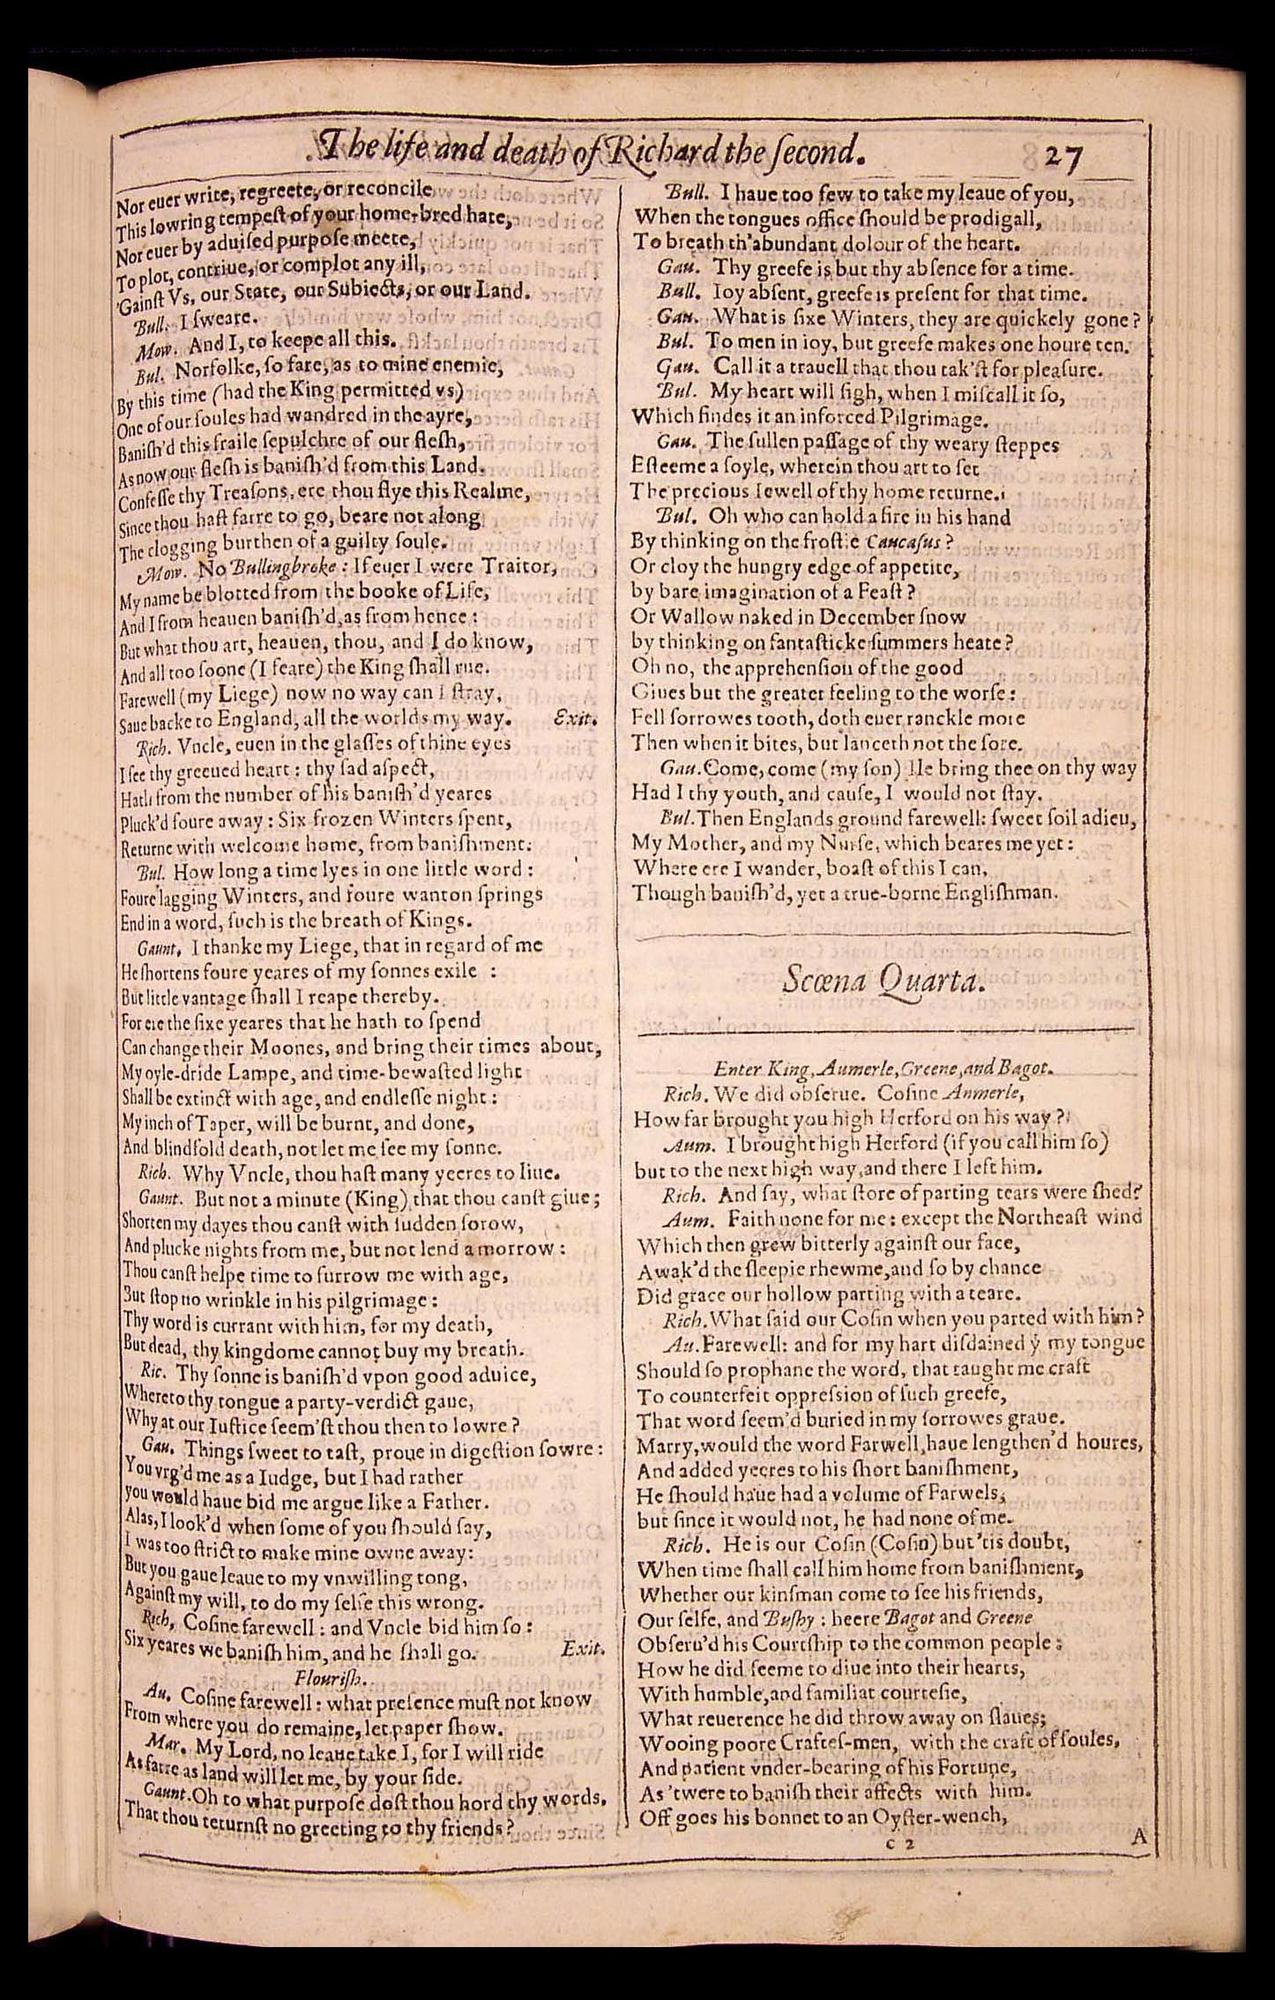 The life and death of Richard the ſecond. 27
Nor euer write, regreete, or reconcile
This lowring tempeſt of your home-bred hate,
Nor euer by aduiſed purpoſe meete,
To plot, contriue, or complot any ill,
'Gainſt Vs, our State, our Subiects, or our Land.
Bull. I ſweare.
Mow. And I, to keepe all this.
Bul. Norfolke, ſo fare, as to mine enemie,
By this time (had the King permitted vs)
One of our ſoules had wandred in the ayre,
Baniſh'd this fraile ſepulchre of our fleſh,
As now our fleſh is baniſh'd from this Land.
Confeſſe thy Treaſons, ere thou flye this Realme,
Since thou haſt farre to go, beare not along
The clogging burthen of a guilty ſoule.
Mow. No Bullingbroke: If euer I were Traitor,
My name be blotted from the booke of Life,
And I from heauen baniſh'd, as from hence:
But what thou art, heauen, thou, and I do know,
And all too ſoone (I feare) the King ſhall rue.
Farewell (my Liege) now no way can I ſtray,
Saue backe to England, all the worlds my way. Exit.
Rich. Vncle, euen in the glaſſes of thine eyes
I ſee thy greeued heart: thy ſad aſpect,
Hath from the number of his baniſh'd yeares
Pluck'd foure away: Six frozen Winters ſpent,
Returne with welcome home, from baniſhment.
Bul. How long a time lyes in one little word:
Foure lagging Winters, and foure wanton ſprings
End in a word, ſuch is the breath of Kings.
Gaunt. I thanke my Liege, that in regard of me
He ſhortens foure yeares of my ſonnes exile :
But little vantage ſhall I reape thereby.
For ere the ſixe yeares that he hath to ſpend
Can change their Moones, and bring their times about,
My oyle-dride Lampe, and time-bewaſted light
Shall be extinct with age, and endleſſe night:
My inch of Taper, will be burnt, and done,
And blindfold death, not let me ſee my ſonne.
Rich. Why Vncle, thou haſt many yeeres to liue.
Gaunt. But not a minute (King) that thou canſt giue;
Shorten my dayes thou canſt with ſudden ſorow,
And plucke nights from me, but not lend a morrow:
Thou canſt helpe time to furrow me with age,
But ſtop no wrinkle in his pilgrimage:
Thy word is currant with him, for my death,
But dead, thy kingdome cannot buy my breath.
Ric. Thy ſonne is baniſh'd vpon good aduice,
Whereto thy tongue a party-verdict gaue,
Why at our Iuſtice ſeem'ſt thou then to lowre?
Gau. Things ſweet to taſt, proue in digeſtion ſowre:
You vrg'd me as a Iudge, but I had rather
you would haue bid me argue like a Father.
Alas, I look'd when ſome of you ſhould ſay,
I was too ſtrict to make mine owne away:
But you gaue leaue to my vnwilling tong,
Againſt my will, to do my ſelfe this wrong.
Rich, Coſine farewell: and Vncle bid him ſo:
Six yeares we baniſh him, and he ſhall go. Exit.
Flouriſh.
Au. Coſine farewell: what preſence muſt not know
From where you do remaine, let paper ſhow.
Mar. My Lord, no leaue take I, for I will ride
As farre as land will let me, by your ſide.
Gaunt. Oh to what purpoſe doſt thou hord thy words,
That thou returnſt no greeting to thy friends?
Bull. I haue too few to take my leaue of you,
When the tongues office ſhould be prodigall,
To breath th'abundant dolour of the heart.
Gau. Thy greefe is but thy abſence for a time.
Bull. Ioy abſent, greefe is preſent for that time.
Gau. What is ſixe Winters, they are quickely gone?
Bul. To men in ioy, but greefe makes one houre ten.
Gau. Call it a trauell that thou tak'ſt for pleaſure.
Bul. My heart will ſigh, when I miſcall it ſo,
Which findes it an inforced Pilgrimage.
Gau. The ſullen paſſage of thy weary ſteppes
Eſteeme a ſoyle, wherein thou art to ſet
The precious Iewell of thy home returne.
Bul. Oh who can hold a fire in his hand
By thinking on the froſtie Caucaſus?
Or cloy the hungry edge of appetite,
by bare imagination of a Feaſt?
Or Wallow naked in December ſnow
by thinking on fantaſticke ſummers heate?
Oh no, the apprehenſion of the good
Giues but the greater feeling to the worſe:
Fell ſorrowes tooth, doth euer ranckle more
Then when it bites, but lanceth not the ſore.
Gau. Come, come (my ſon) Ile bring thee on thy way
Had I thy youth, and cauſe, I would not ſtay.
Bul. Then Englands ground farewell: ſweet ſoil adieu,
My Mother, and my Nurſe, which beares me yet:
Where ere I wander, boaſt of this I can,
Though baniſh'd, yet a true-borne Engliſhman.
Scœna Quarta.
Enter King, Aumerle, Greene, and Bagot.
Rich. We did obſerue. Coſine Aumerle,
How far brought you high Herford on his way?
Aum. I brought high Herford (if you call him ſo)
but to the next high way, and there I left him.
Rich. And ſay, what ſtore of parting tears were ſhed?
Aum. Faith none for me: except the Northeaſt wind
Which then grew bitterly againſt our face,
Awak'd the ſleepie rhewme, and ſo by chance
Did grace our hollow parting with a teare.
Rich. What ſaid our Coſin when you parted with him?
Au. Farewell: and for my hart diſdained ẏ my tongue
Should ſo prophane the word, that taught me craft
To counterfeit oppreſsion of ſuch greefe,
That word ſeem'd buried in my ſorrowes graue.
Marry, would the word Farwell, haue lengthen'd houres,
And added yeeres to his ſhort baniſhment,
He ſhould haue had a volume of Farwels,
but ſince it would not, he had none of me.
Rich. He is our Coſin (Coſin) but 'tis doubt,
When time ſhall call him home from baniſhment,
Whether our kinſman come to ſee his friends,
Our ſelfe, and Buſhy: heere Bagot and Greene
Obſeru'd his Courtſhip to the common people:
How he did ſeeme to diue into their hearts,
With humble, and familiar courteſie,
What reuerence he did throw away on ſlaues;
Wooing poore Craftes-men, with the craft of ſoules,
And patient vnder-bearing of his Fortune,
As 'twere to baniſh their affects with him.
Off goes his bonnet to an Oyſter-wench,
c 2 A